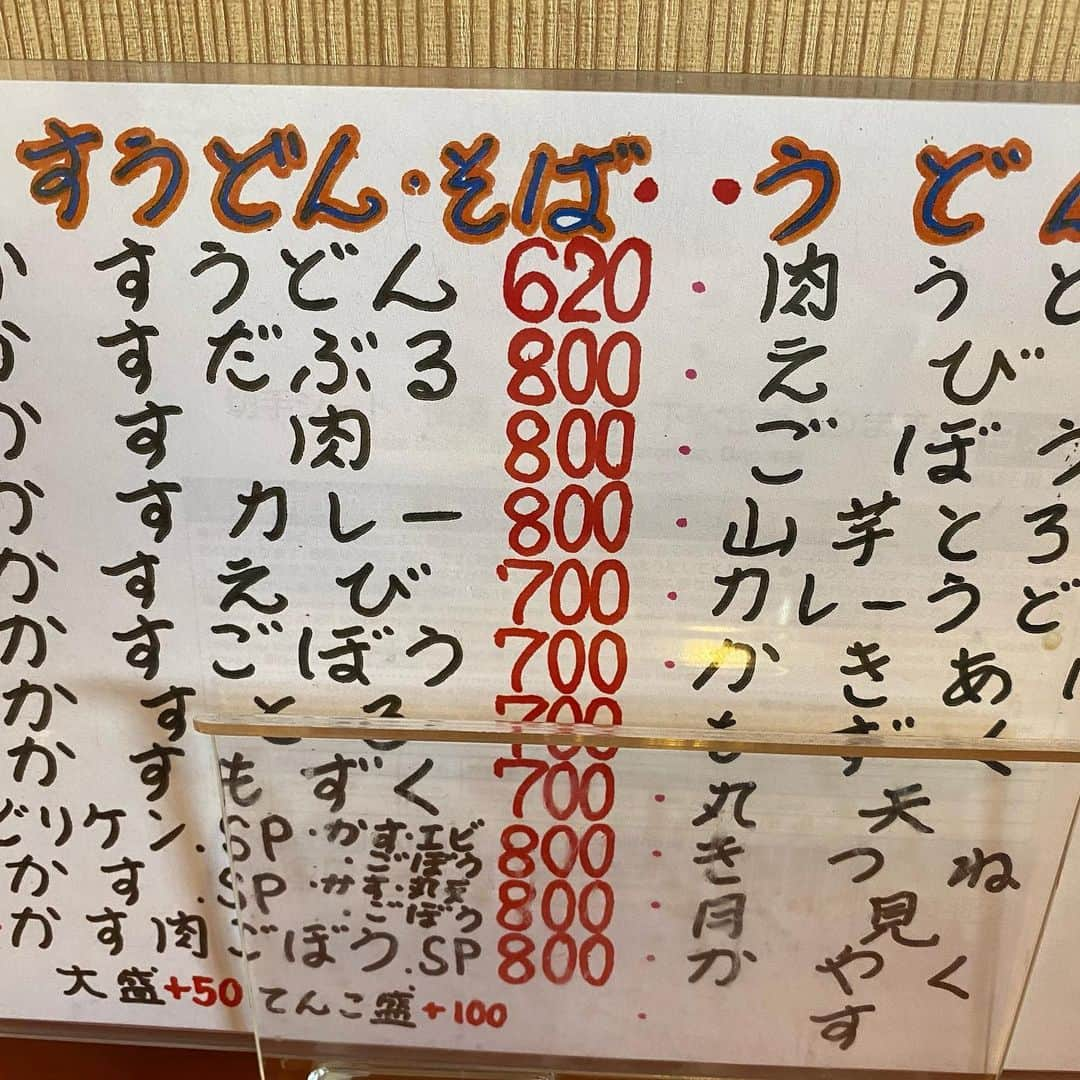 すうどん・そば・・うどん
かすうどん 620・肉うど
かすだぶる 800・えび
かす肉 800・ごぼう
かすカレー 800・山芋とろ
かすえび 700・カレーうど
かすごぼう 700・かきあ
かすとろ 700・もずく
かすもずく 700・丸天
どりケン.SP・かす・エビ・ごぼう 800・きつね
かす.SP・かす・丸天・ごぼう 800・月見
かす肉ごぼう.SP 800・かやく
大盛+50 てんこ盛+100・す